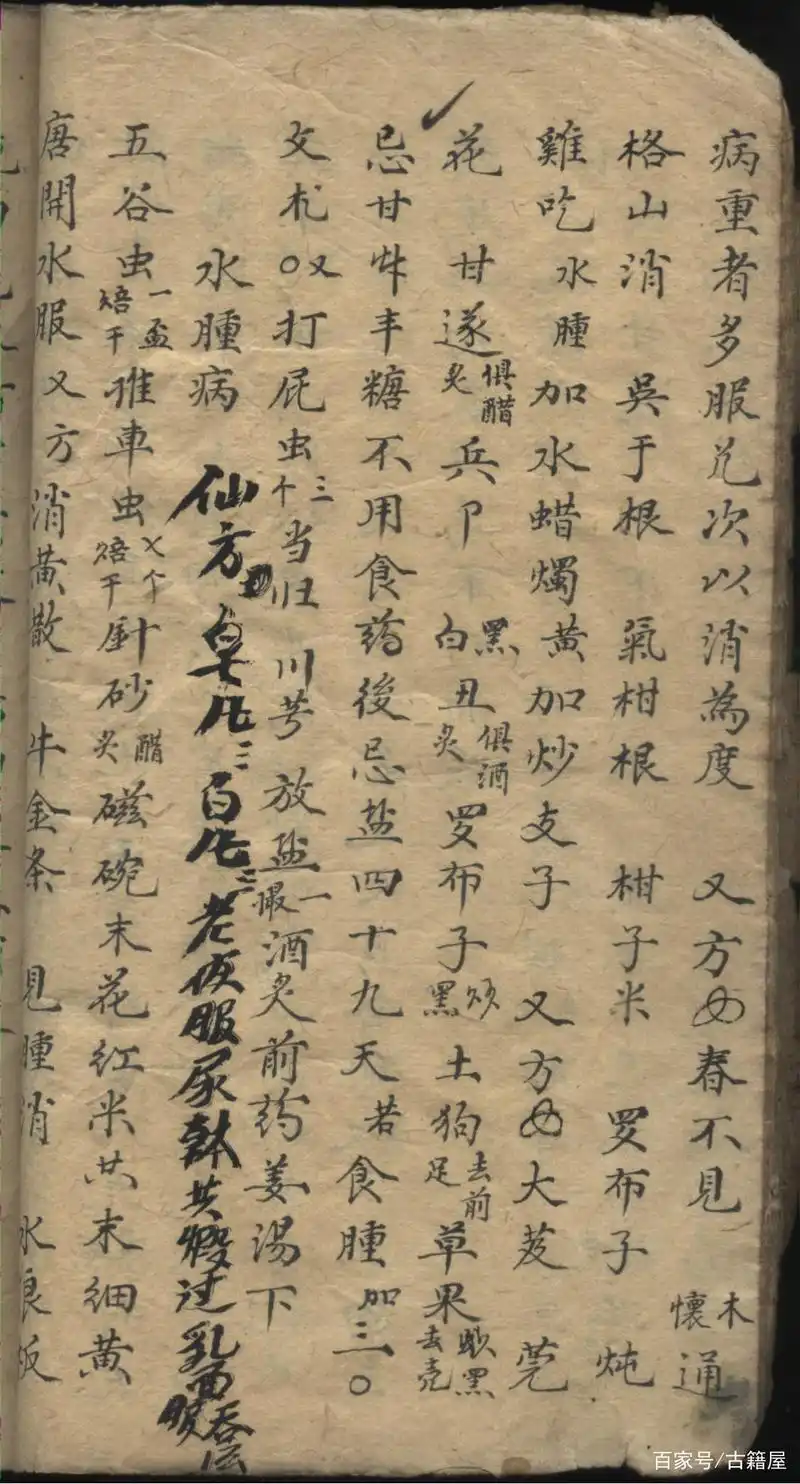 病重者多服几次以消為度 又方 春不見 木懷通
格山消 吳于根 氣柑根 柑子米 罗布子 炖
雞吃水腫加水蜡燭黄加炒支子 又方 大芨 芫
花 甘遂俱醋炙 兵 黑白丑俱酒炙罗布子炒黑土狗去前足草果去壳
忌甘 丰糖不用食药後忌盐四十九天若食腫加三〇
文札 打屁虫三个当归 川芎 放盐一撮酒炙前药姜湯下
水腫病 仙方 皂 白 老 服尿 共煅过乳 服
五谷虫一盃焙干推車虫 个焙干針砂醋炙磁碗末花红米共末细黄
唐開水服又方消黄散 牛金条 見腫消 水
百家号/古籍屋